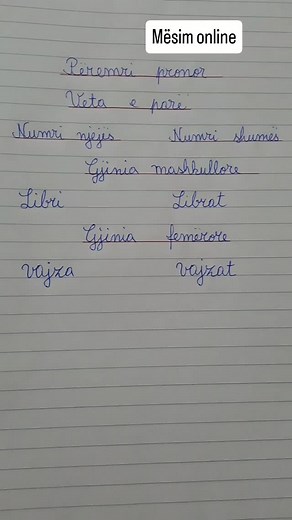 Mësim online
Peremri pronor
Veta e parë
Numri njëjës Numri shumës
Gjinia mashkullore
Libri Librat
Gjinia femërore
vajza vajzat